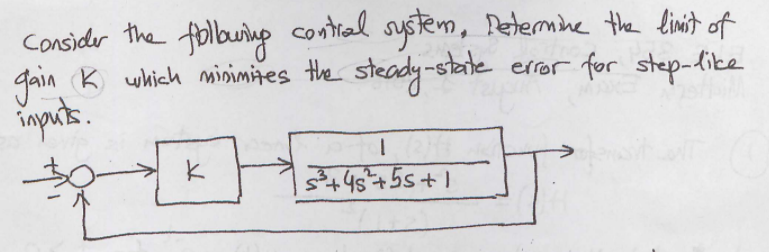 Consider the following control system. Determine the limit of
gain K which minimizes the steady-state error for step-like
inputs.
+
-
K
1
s³+4s²+5s+1